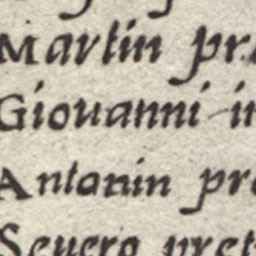 Martin pr
Giouanni in
Antonin pre
Seuero pret